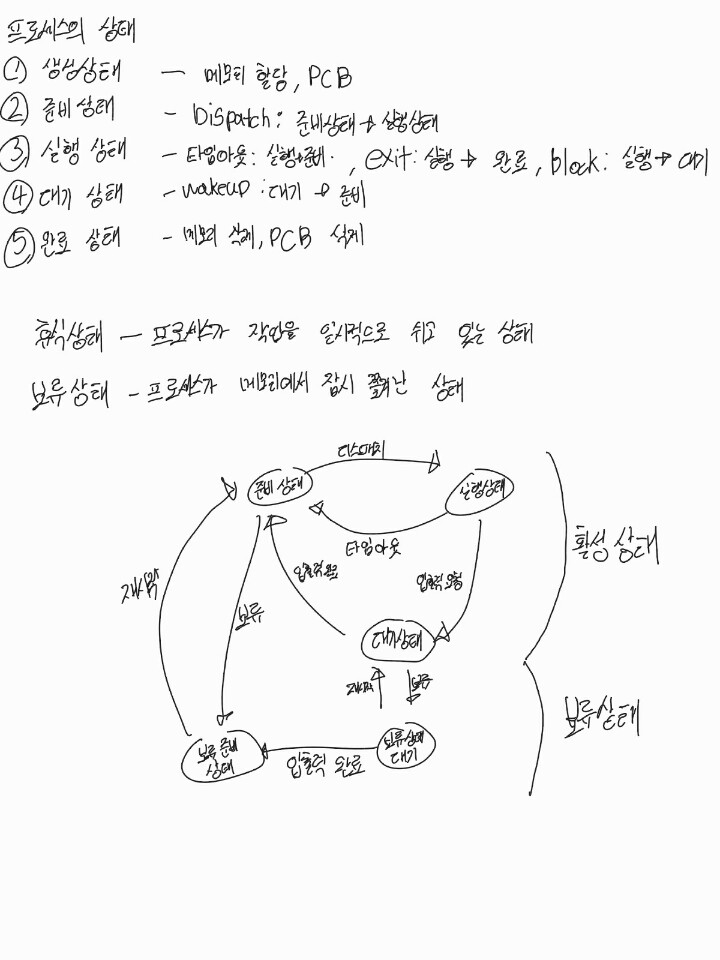 프로세스의 상태
① 생성상태 — 메모리 할당, PCB
② 준비상태 - Dispatch: 준비상태→실행상태
③ 실행 상태 - 타임아웃: 실행→준비. , exit: 실행 → 완료, block: 실행→대기
④ 대기 상태 - wakeup : 대기 → 준비
⑤ 완료 상태 - 메모리 삭제, PCB 삭제
휴식상태 — 프로세스가 작업을 일시적으로 쉬고 있는 상태
보류상태 - 프로세스가 메모리에서 잠시 쫓겨난 상태
디스패치
준비 상태
실행상태
타임아웃
활성 상태
재시작
입출력완료
입출력 요청
보류
대기상태
재시작
보류
보류상태
보류 준비
상태
입출력 완료
보류상태
대기